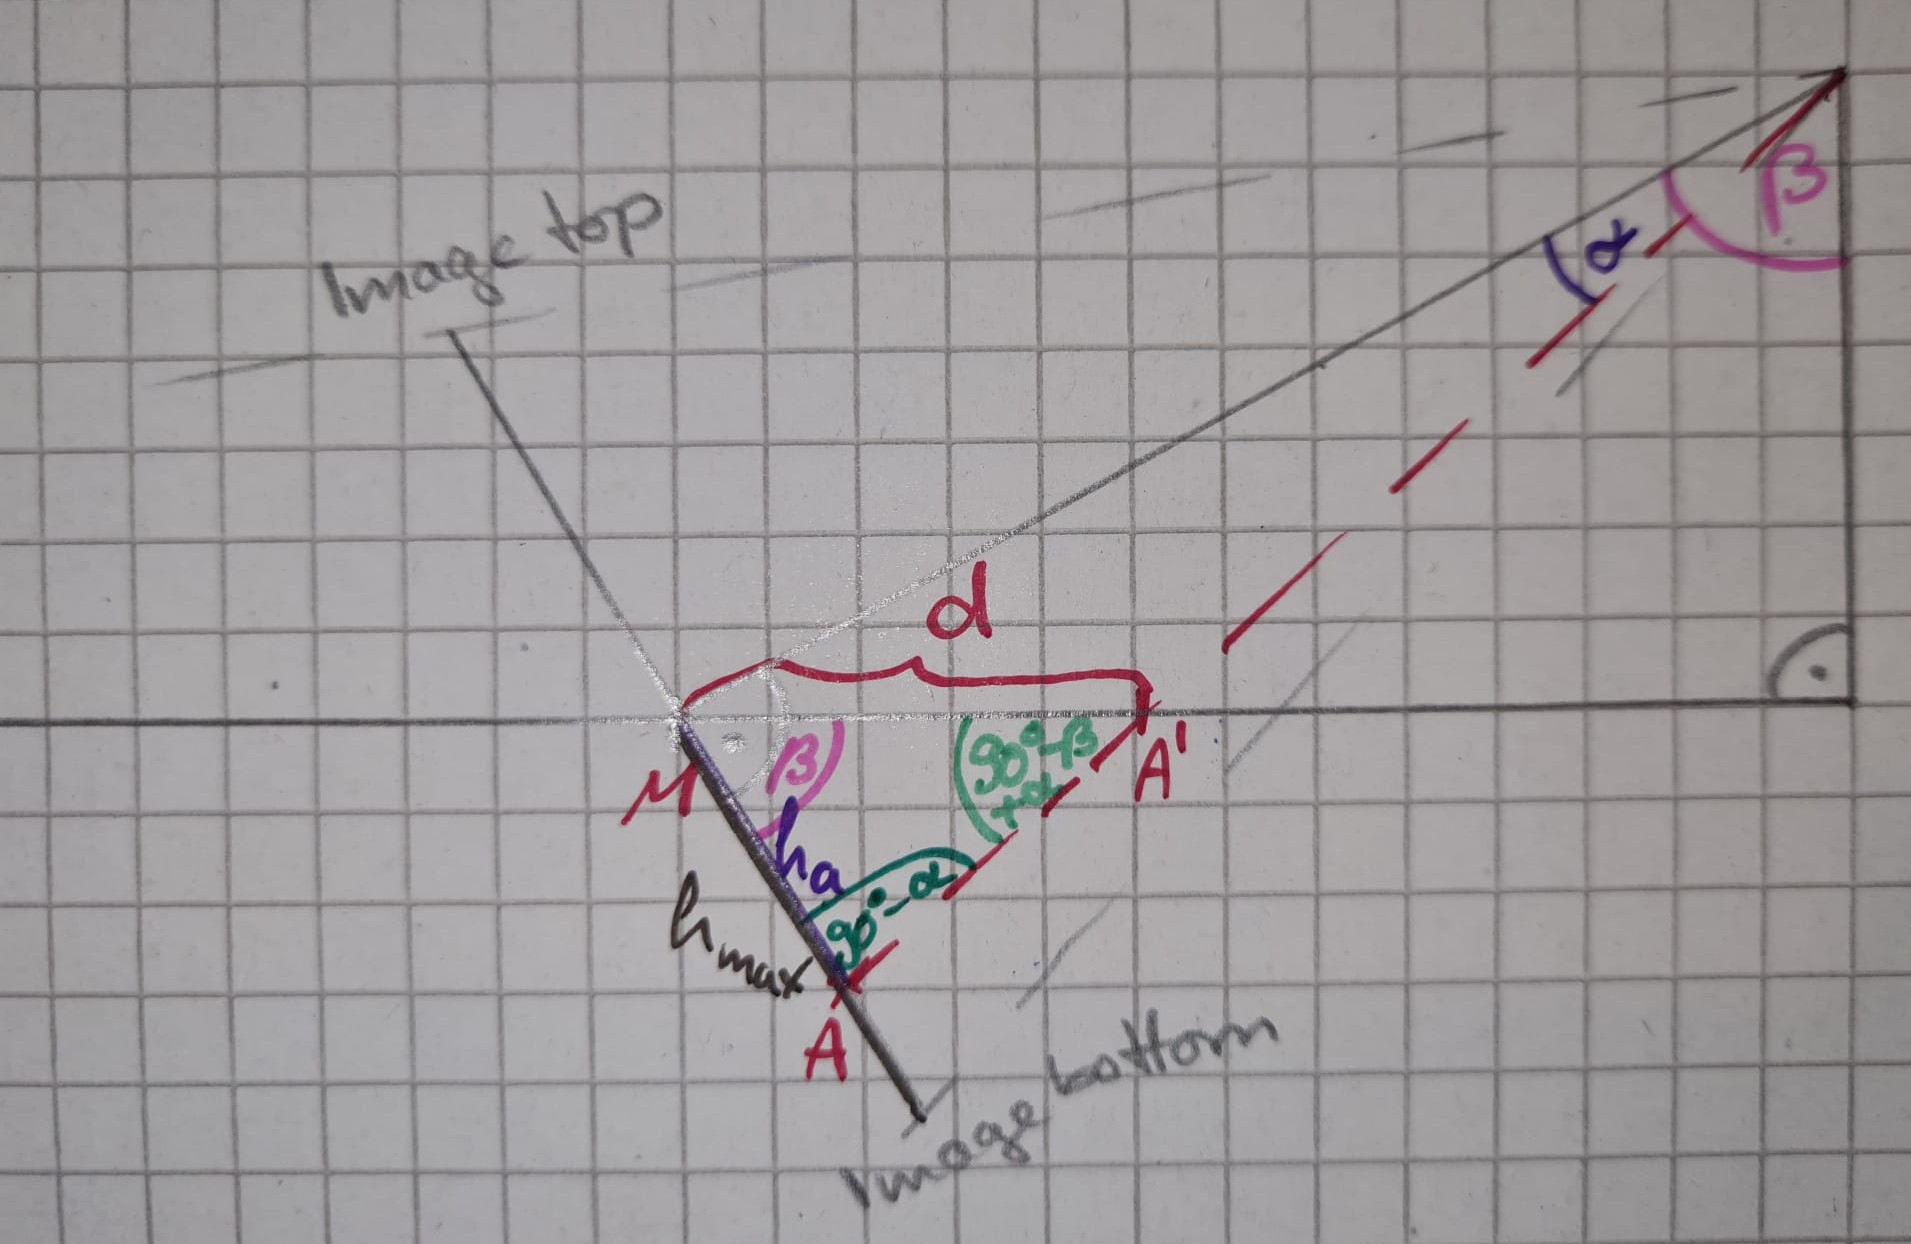 Image top
β
α
d
M
β
90°-β
+α
A'
ha
90°-α
hmax
A
Image bottom